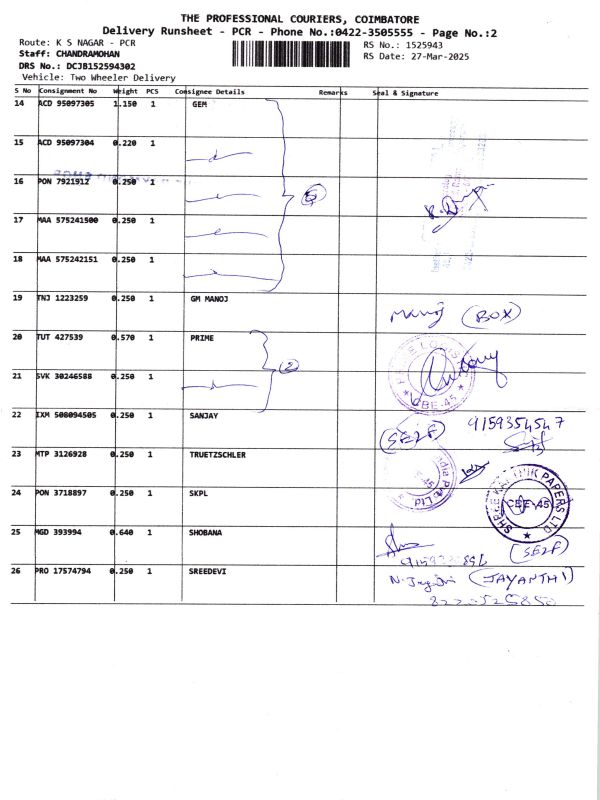 THE PROFESSIONAL COURIERS, COIMBATORE
Delivery Runsheet - PCR - Phone No.:0422-3505555 - Page No.:2
Route: K S NAGAR - PCR
RS No.: 1525943
Staff: CHANDRAMOHAN
RS Date: 27-Mar-2025
DRS No.: DCJB152594302
Vehicle: Two Wheeler Delivery
S No Consignment No Weight PCS Consignee Details Remarks Seal & Signature
14 ACD 95097305 1.150 1 GEM
15 ACD 95097304 0.220 1
16 PON 7921912 0.250 1
5
17 MAA 575241500 0.250 1
18 MAA 575242151 0.250 1
19 TNJ 1223259 0.250 1 GM MANOJ
Manoj (BOX)
20 TUT 427539 0.570 1 PRIME
2
21 SVK 30246588 0.250 1
CBE-45
22 IXM 508094505 0.250 1 SANJAY
(SELF) 9159354547
23 MTP 3126928 0.250 1 TRUETZSCHLER
India Pvt Ltd
24 PON 3718897 0.250 1 SKPL
SHREE KARTHIK PAPERS LTD
CBE-45
25 MGD 393994 0.640 1 SHOBANA
(SELF)
26 PRO 17574794 0.250 1 SREEDEVI
(JAYANTHI)